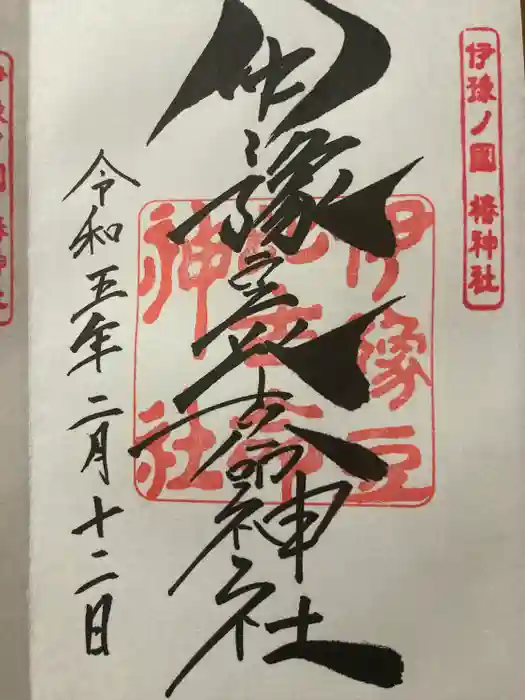 伊豫ノ國 椿神社
伊豫豆比古命神社
伊豫豆
比古命
神社
令和五年二月十二日